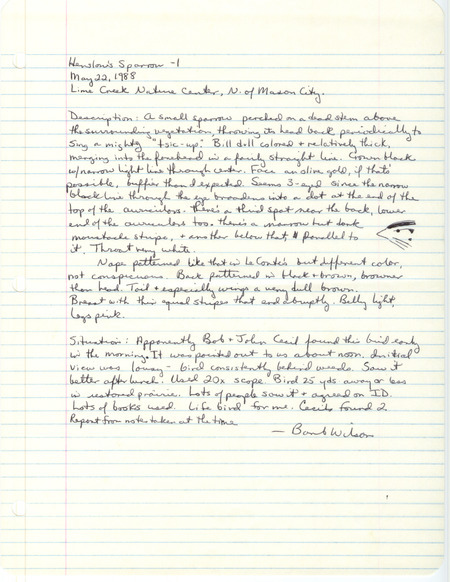 Henslow's Sparrow -1
May 22, 1988
Lime Creek Nature Center, N. of Mason City.
Description: A small sparrow perched on a dead stem above
the surrounding vegetation, throwing its head back periodically to
sing a mighty "tsic-up." Bill dull colored + relatively thick,
merging into the forehead in a fairly straight line. Crown black
w/narrow light line through center. Face an olive gold, if that's
possible, buffier than I expected. Seems 3-eyed since the narrow
black line through the eye broadens into a dot at the end of the
top of the auriculars. There's a third spot near the back, lower
end of the auriculars too. There's a narrow but dark
moustache stripe, + another below that parallel to
it. Throat very white.
Nape patterned like that in LeConte's but different color,
not conspicuous. Back patterned in black + brown, browner
than head. Tail + especially wings a very dull brown.
Breast with thin equal stripes that end abruptly. Belly light,
legs pink.
Situation: Apparently Bob + John Cecil found this bird early
in the morning. It was pointed out to us about noon. Initial
view was lousy - bird consistently behind weeds. Saw it
better after lunch. Used 20x scope. Bird 25 yds away or less
in restored prairie. Lots of people saw it + agreed on ID.
Lots of books used. Life bird for me. Cecils found 2.
Report from notes taken at the time.
— Barb Wilson